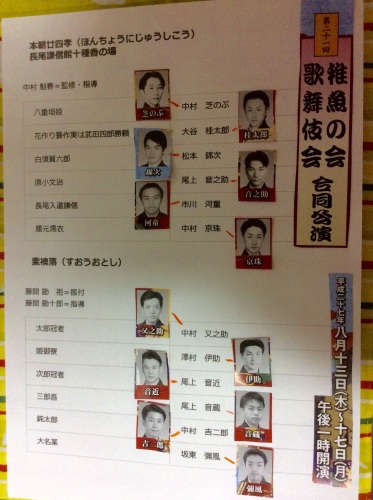 第二十一回
稚魚の会
歌舞伎会
合同公演
平成二十七年八月十三日(木)〜十七日(月)
午後一時開演
本朝廿四孝(ほんちょうにじゅうしこう)
長尾謙信館十種香の場
中村 魁春=監修・指導
八重垣姫
中村 芝のぶ
芝のぶ
花作り簑作実は武田四郎勝頼
大谷 桂太郎
桂太郎
白須賀六郎
松本 錦次
錦次
原小文治
尾上 音之助
音之助
長尾入道謙信
市川 河童
河童
腰元濡衣
中村 京珠
京珠
素襖落(すおうおとし)
藤間 勘十郎=指導
太郎冠者
中村 又之助
又之助
姫御寮
澤村 伊助
伊助
次郎冠者
尾上 音近
音近
三郎吾
尾上 音蔵
音蔵
鈍太郎
中村 吉二郎
吉二郎
大名某
坂東 彌風
彌風